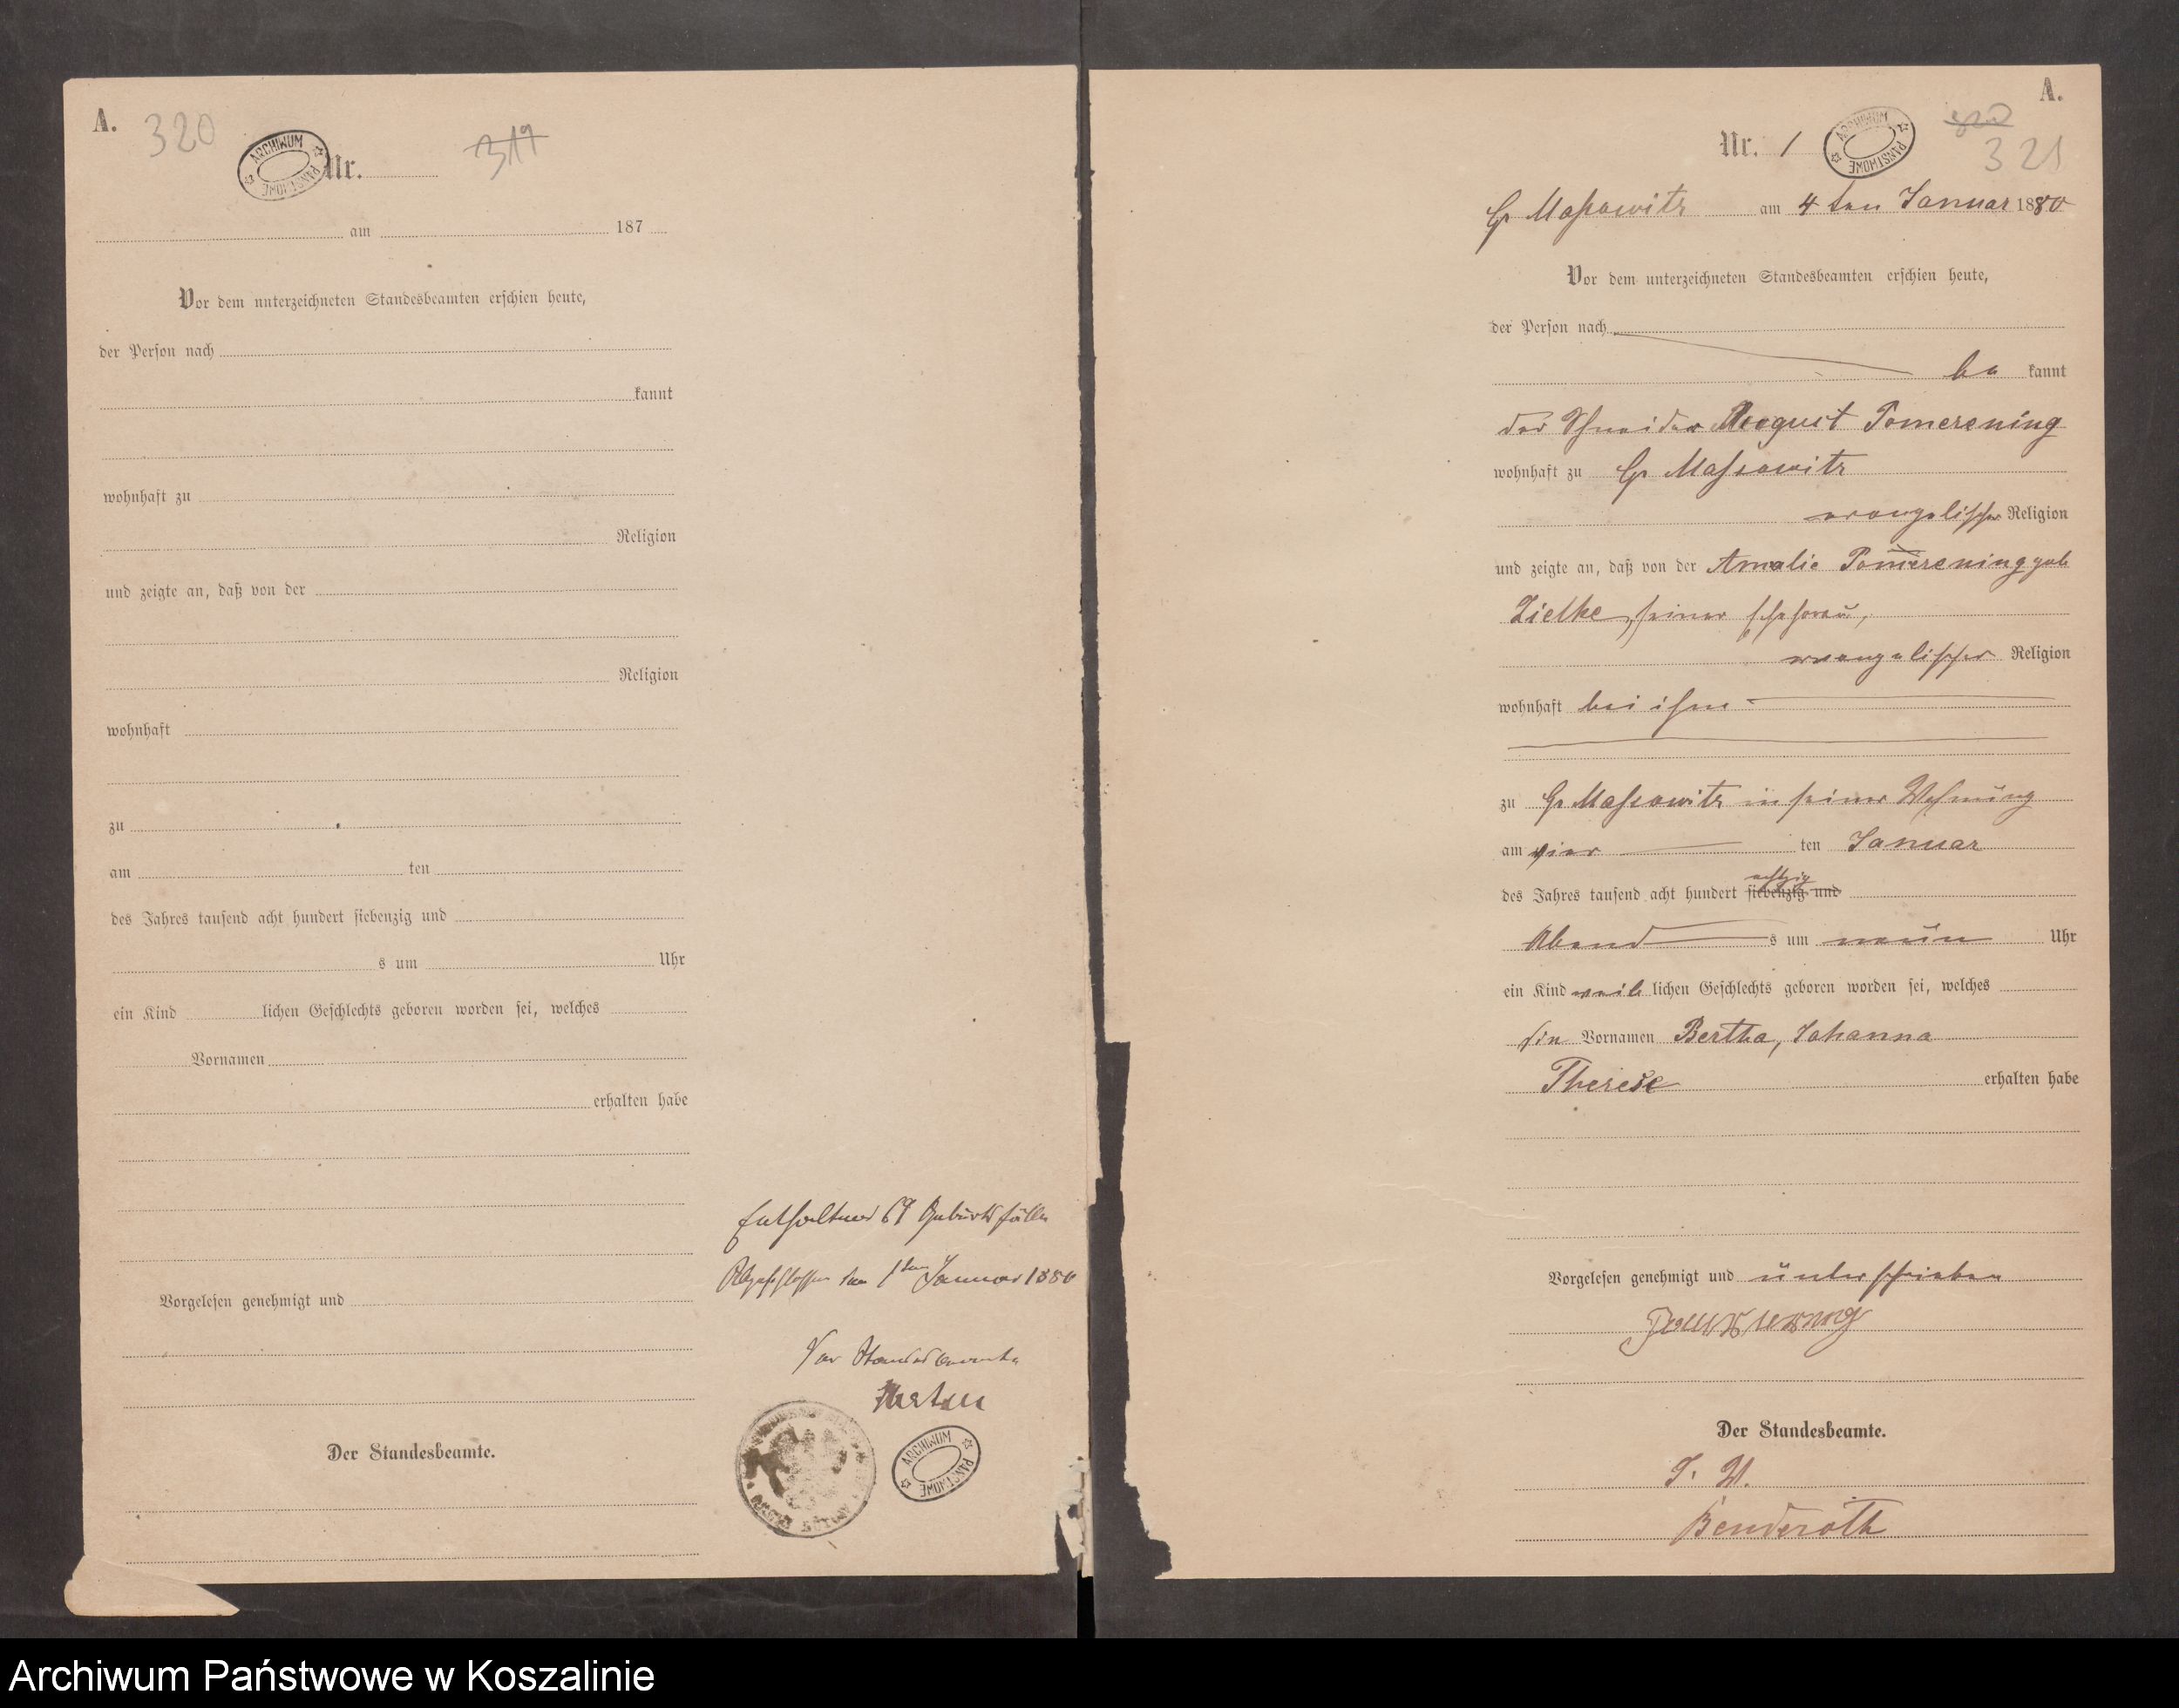 A.
320
Nr.
319
am 187
Vor dem unterzeichneten Standesbeamten erschien heute,
der Person nach
kannt
wohnhaft zu
Religion
und zeigte an, daß von der
Religion
wohnhaft
zu
am ten
des Jahres tausend acht hundert siebenzig und
s um Uhr
ein Kind lichen Geschlechts geboren worden sei, welches
Vornamen
erhalten habe
Vorgelesen genehmigt und
Der Standesbeamte.
69 Geburtsfälle
Abgeschlossen den 1ten Januar 1880
Der Standesbeamte
ARCHIWUM PAŃSTWOWE
A.
Nr. 1
320
321
ARCHIWUM PAŃSTWOWE
Gr Massowitz am 4ten Januar 1880
Vor dem unterzeichneten Standesbeamten erschien heute,
der Person nach
be kannt
der Schneider August Pomerening
wohnhaft zu Gr Massowitz
evangelischer Religion
und zeigte an, daß von der Amalie Pomerening geb
Zielke, seiner Ehefrau,
evangelischer Religion
wohnhaft bei ihm
zu Gr Massowitz in seiner Wohnung
am vier ten Januar
achtzig
des Jahres tausend acht hundert siebenzig und
Abend s um neun Uhr
ein Kind weib lichen Geschlechts geboren worden sei, welches
die Vornamen Bertha, Johanna
Therese erhalten habe
Vorgelesen genehmigt und unterschrieben
Der Standesbeamte.
Benderoth
Archiwum Państwowe w Koszalinie